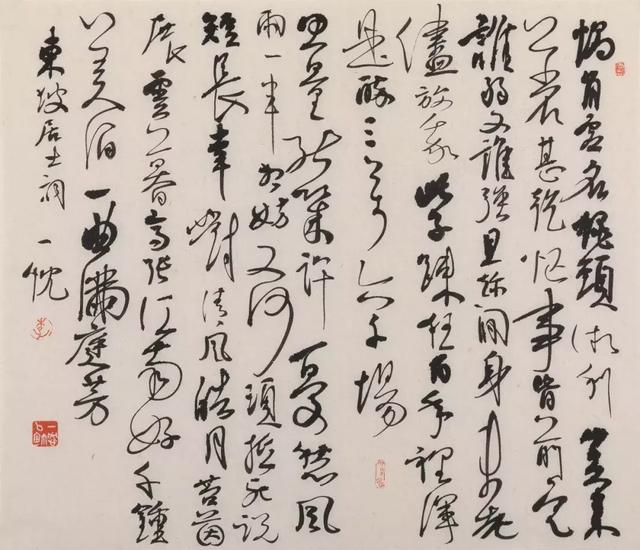 蝸角虛名蠅頭微利算來
著甚乾忙事皆前定
誰弱又誰強且趁閒身未老
儘放我些子疎狂百年裡渾
是醉三万六千場
思量能幾許憂愁風
雨一半相妨又何須抵死說
短長幸對清風皓月苔茵
展雲幕高張江南好千鍾
美酒一曲滿庭芳
東坡居士詞 一